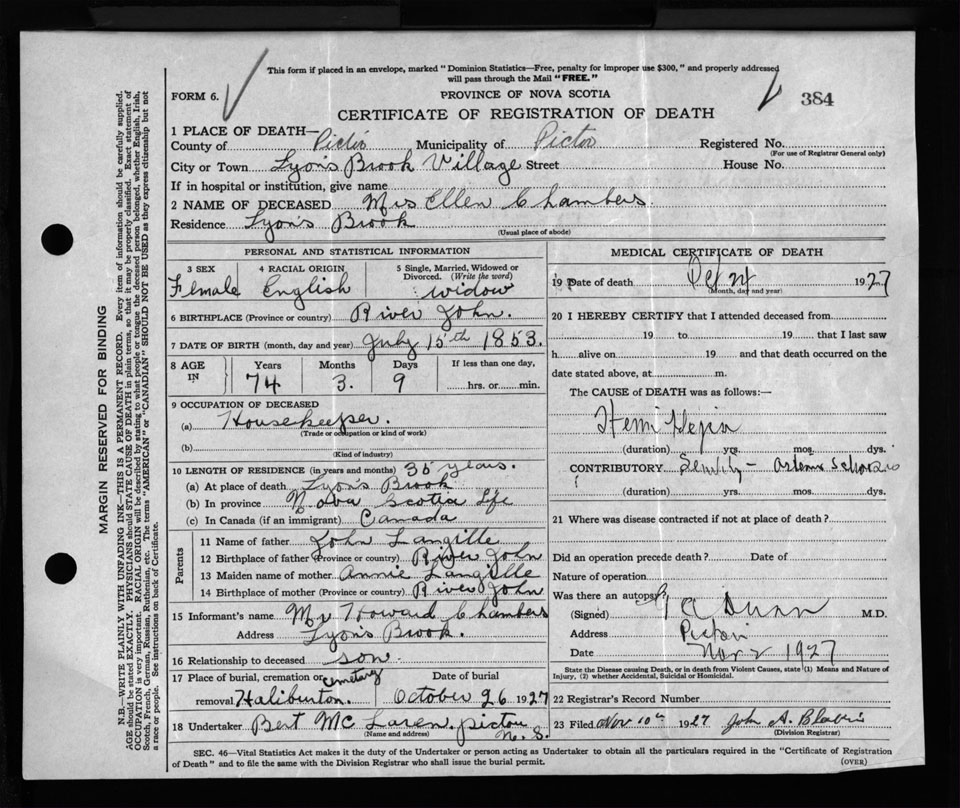 This form if placed in an envelope, marked "Dominion Statistics—Free, penalty for improper use $300," and properly addressed
will pass through the Mail "FREE."
FORM 6.
PROVINCE OF NOVA SCOTIA
384
CERTIFICATE OF REGISTRATION OF DEATH
1 PLACE OF DEATH—
County of Pictou Municipality of Pictou Registered No.
(For use of Registrar General only)
City or Town Lyon's Brook Village Street House No.
If in hospital or institution, give name
2 NAME OF DECEASED Mrs Ellen Chambers
Residence Lyon's Brook
(Usual place of abode)
PERSONAL AND STATISTICAL INFORMATION
3 SEX 4 RACIAL ORIGIN 5 Single, Married, Widowed or
Divorced. (Write the word)
Female English widow
6 BIRTHPLACE (Province or country) River John.
7 DATE OF BIRTH (month, day and year) July 15th 1853.
8 AGE IN Years Months Days If less than one day,
74 3. 9 hrs. or min.
9 OCCUPATION OF DECEASED
(a) Housekeeper.
(Trade or occupation or kind of work)
(b)
(Kind of industry)
10 LENGTH OF RESIDENCE (in years and months) years.
(a) At place of death Lyon's Brook
(b) In province Nova Scotia life
(c) In Canada (if an immigrant) Canada
Parents
11 Name of father John Langille
12 Birthplace of father (Province or country) River John
13 Maiden name of mother Annie Langille
14 Birthplace of mother (Province or country) River John
15 Informant's name Mr Howard Chambers
Address Lyon's Brook.
16 Relationship to deceased son.
17 Place of burial, cremation or cemetary Date of burial
removal Haliburton. October 26 1927
18 Undertaker Bert McLaren, pictou
(Name and address) N. S.
MEDICAL CERTIFICATE OF DEATH
19 Date of death Oct 24 1927
(Month, day and year)
20 I HEREBY CERTIFY that I attended deceased from
19 to 19 that I last saw
h alive on 19 and that death occurred on the
date stated above, at m.
The CAUSE of DEATH was as follows:—
(duration) yrs. mos. dys.
CONTRIBUTORY Senility —
(duration) yrs. mos. dys.
21 Where was disease contracted if not at place of death?
Did an operation precede death? Date of
Nature of operation
Was there an autopsy?
(Signed) Dunn M.D.
Address Pictou
Date Nov 2 1927
State the Disease causing Death, or in death from Violent Causes, state (1) Means and Nature of
Injury, (2) whether Accidental, Suicidal or Homicidal.
22 Registrar's Record Number
23 Filed Nov 10th 1927 John A.
(Division Registrar)
SEC. 46—Vital Statistics Act makes it the duty of the Undertaker or person acting as Undertaker to obtain all the particulars required in the "Certificate of Registration
of Death" and to file the same with the Division Registrar who shall issue the burial permit.
(OVER)
MARGIN RESERVED FOR BINDING
N.B.—WRITE PLAINLY WITH UNFADING INK—THIS IS A PERMANENT RECORD. Every item of information should be carefully supplied.
AGE should be stated EXACTLY. PHYSICIANS should STATE CAUSE OF DEATH in plain terms, so that it may be properly classified. Exact statement of
OCCUPATION is very important. RACIAL ORIGIN will be described by stating to what people or tongue the deceased person belonged, whether English, Irish,
Scotch, French, German, Russian, Ruthenian, etc. The terms "AMERICAN" or "CANADIAN" SHOULD NOT BE USED as they express citizenship but not
a race or people. See instructions on back of Certificate.